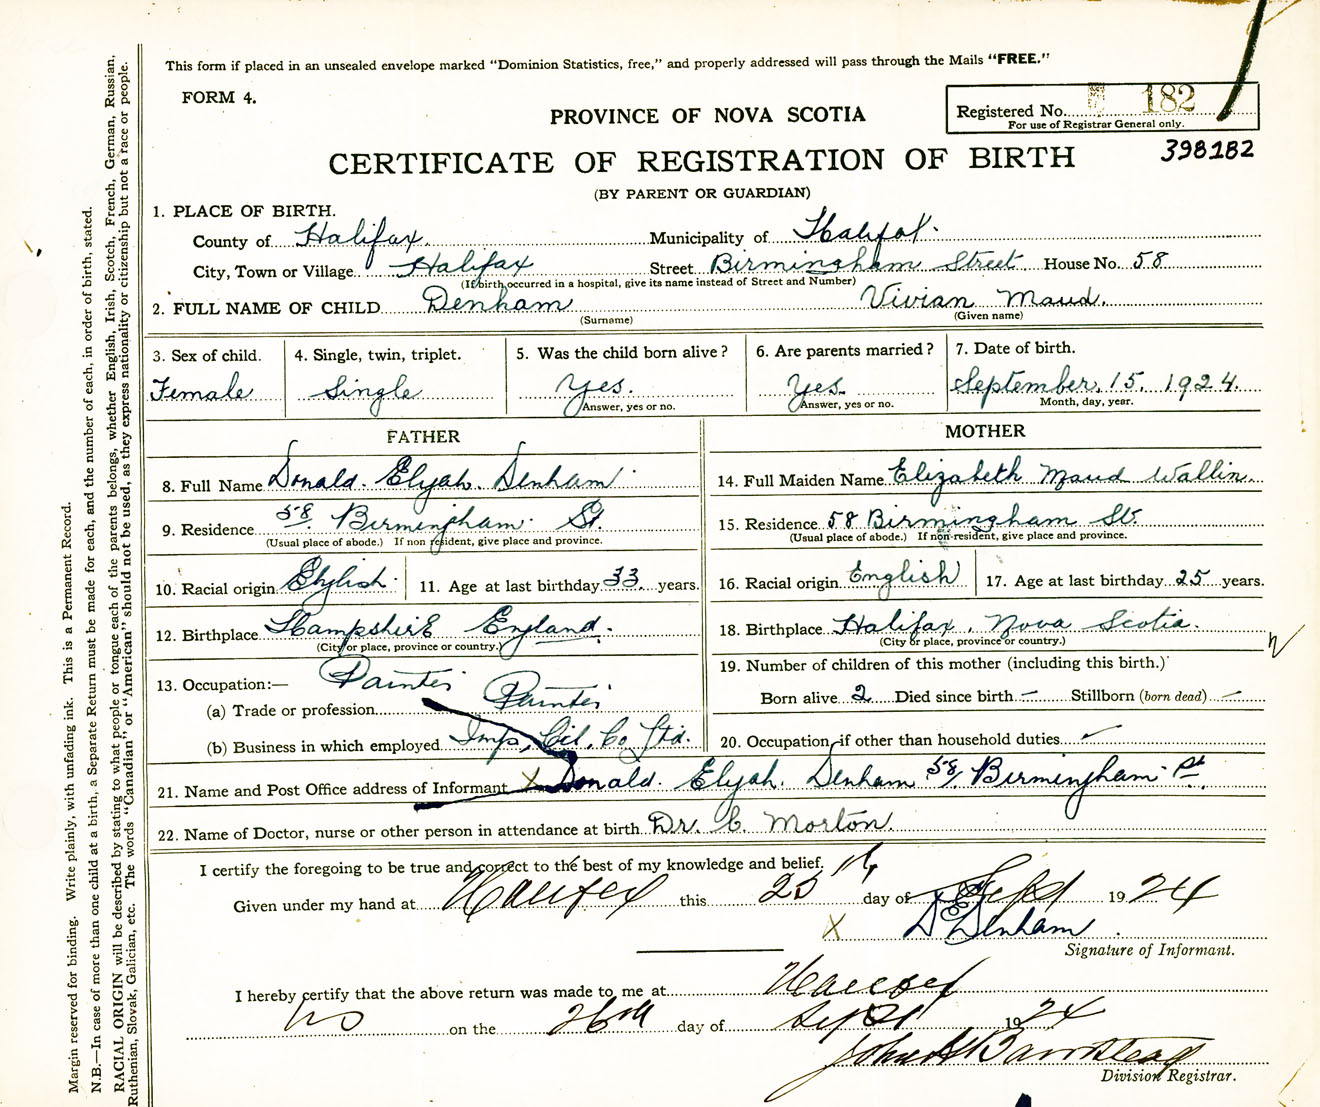 This form if placed in an unsealed envelope marked "Dominion Statistics, free," and properly addressed will pass through the Mails "FREE."
FORM 4.
PROVINCE OF NOVA SCOTIA
Registered No. 182
For use of Registrar General only.
CERTIFICATE OF REGISTRATION OF BIRTH
398182
(BY PARENT OR GUARDIAN)
1. PLACE OF BIRTH.
County of Halifax. Municipality of Halifax.
City, Town or Village Halifax Street Birmingham Street House No. 58
(If birth occurred in a hospital, give its name instead of Street and Number)
2. FULL NAME OF CHILD Denham Vivian Maud.
(Surname) (Given name)
3. Sex of child. 4. Single, twin, triplet. 5. Was the child born alive? 6. Are parents married? 7. Date of birth.
Female Single Yes. Yes. September. 15. 1924.
Answer, yes or no. Answer, yes or no. Month, day, year.
FATHER
8. Full Name Donald. Elijah. Denham
9. Residence 58. Birmingham. St.
(Usual place of abode.) If non resident, give place and province.
10. Racial origin English. 11. Age at last birthday 33 years.
12. Birthplace Hampshire England.
(City or place, province or country.)
13. Occupation:— Painter
(a) Trade or profession Painter
(b) Business in which employed Imp, Oil, Co Ltd.
MOTHER
14. Full Maiden Name Elizabeth Maud Wallin.
15. Residence 58 Birmingham St.
(Usual place of abode.) If non-resident, give place and province.
16. Racial origin English 17. Age at last birthday 25 years.
18. Birthplace Halifax, Nova Scotia.
(City or place, province or country.)
19. Number of children of this mother (including this birth.)
Born alive 2 Died since birth — Stillborn (born dead) —
20. Occupation, if other than household duties.
21. Name and Post Office address of Informant X Donald. Elijah. Denham 58, Birmingham. St.
22. Name of Doctor, nurse or other person in attendance at birth Dr. C. Morton.
I certify the foregoing to be true and correct to the best of my knowledge and belief.
Given under my hand at Halifax this 25th day of Sept 1924
X D Denham
Signature of Informant.
I hereby certify that the above return was made to me at Halifax
NS on the 26th day of Sept 1924
John A Barnstead
Division Registrar.
Margin reserved for binding. Write plainly, with unfading ink. This is a Permanent Record.
N.B.—In case of more than one child at a birth, a Separate Return must be made for each, and the number of each, in order of birth, stated.
RACIAL ORIGIN will be described by stating to what people or tongue each of the parents belongs, whether English, Irish, Scotch, French, German, Russian,
Ruthenian, Slovak, Galician, etc. The words "Canadian" or "American" should not be used, as they express nationality or citizenship but not a race or people.